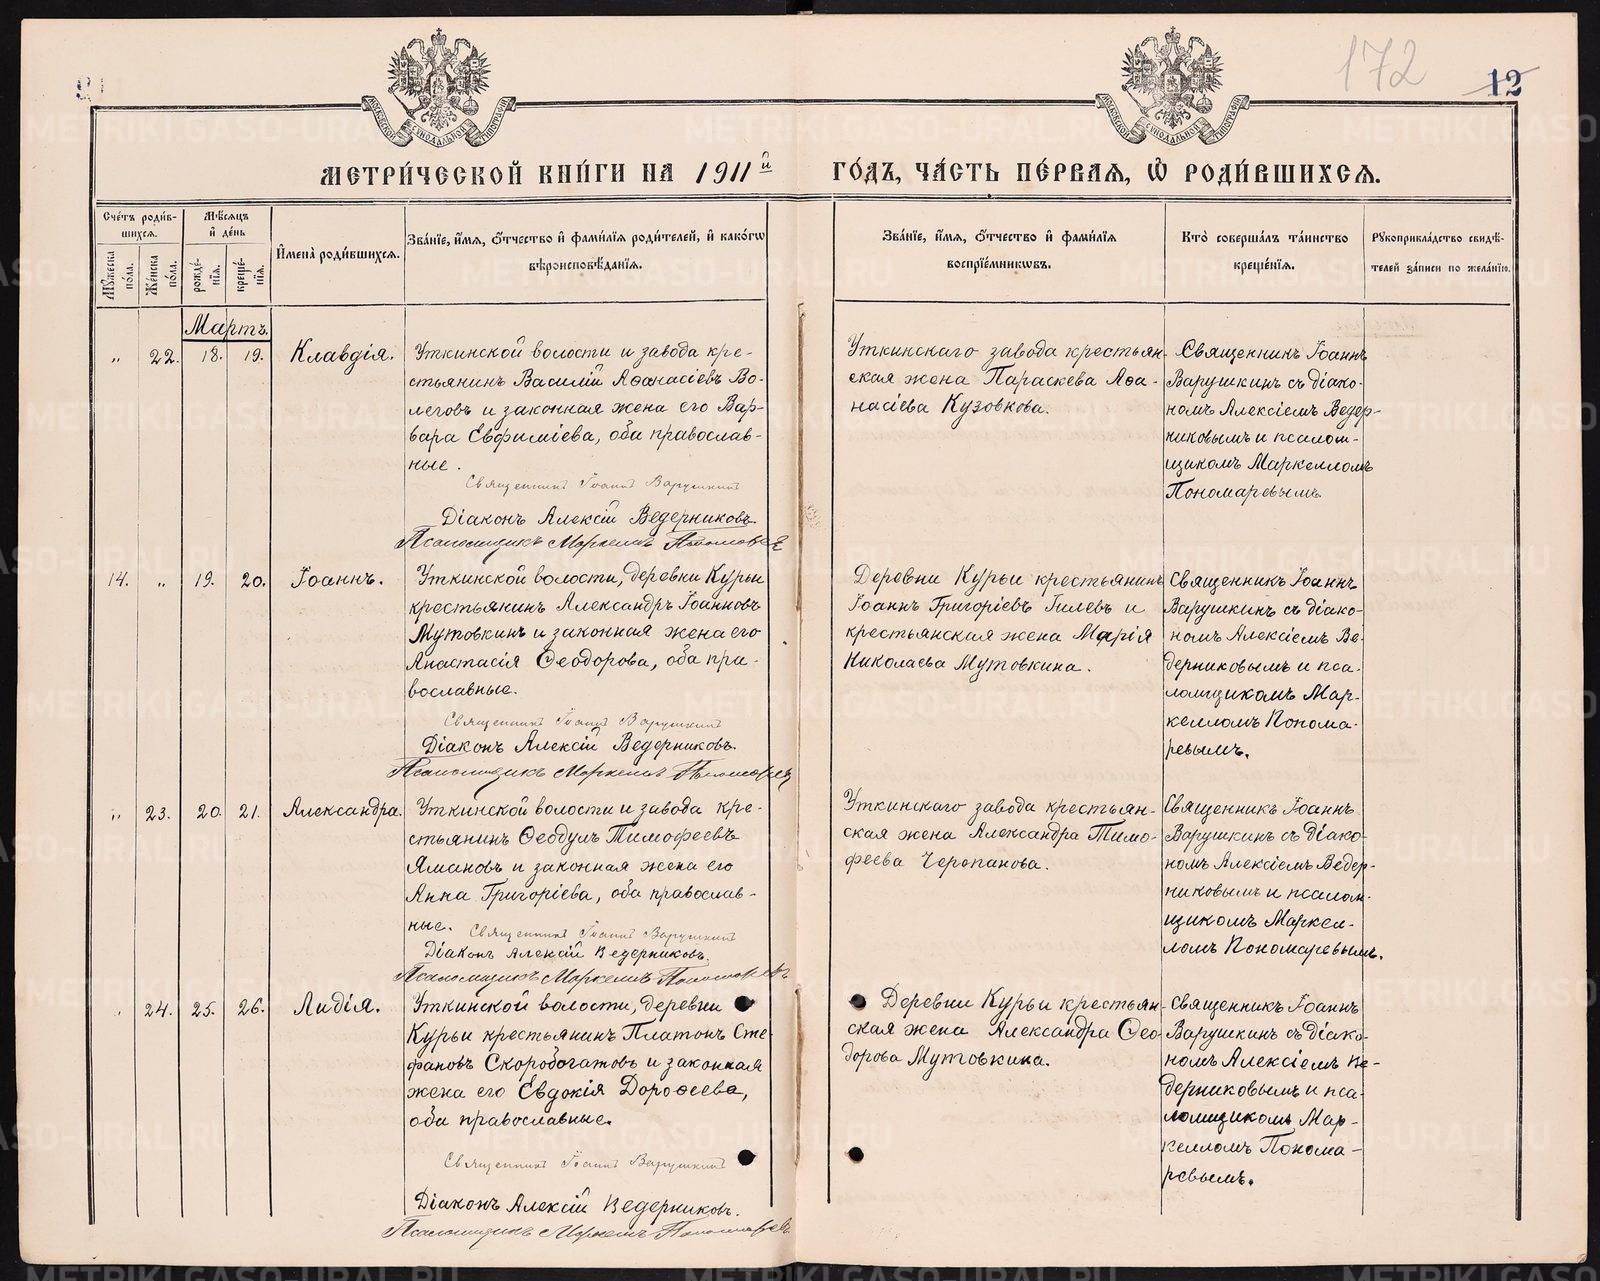 172
12
МОСКОВСКОЙ СѴНОДАЛЬНОЙ ТИПОГРАФІИ
МОСКОВСКОЙ СѴНОДАЛЬНОЙ ТИПОГРАФІИ
МЕТРИ́ЧЕСКОЙ КНИ́ГИ НА 1911й ГО́ДЪ, ЧА́СТЬ ПЕ́РВАѦ, Ѡ РОДИ́ВШИХСѦ.
Сче́тъ роди́в-
шихсѧ.
Мꙋ́жеска по́ла.
Же́нска по́ла.
Мѣ́сѧцъ и҆ де́нь
рожде́-нїѧ.
креще́-нїѧ.
И҆мена̀ роди́вшихсѧ.
Зва́нїе, и҆́мѧ, ѻ҆́тчество и҆ фами́лїѧ роди́телей, и҆ како́гѡ
вѣроисповѣ́данїѧ.
Зва́нїе, и҆́мѧ, ѻ҆́тчество и҆ фами́лїѧ
воспрїе́мникѡвъ.
Кто̀ соверша́лъ та́инство
креще́нїѧ.
Рꙋкоприкла́дство свидѣ́-
телей за́писи по жела́нїю.
Мартъ.
„ 22. 18. 19. Клавдія.
Уткинской волости и завода кре-
стьянинъ Василій Аѳанасіевъ Во-
леговъ и законная жена его Вар-
вара Евфиміева, оба православ-
ные.
Священникъ Іоаннъ Варушкинъ
Діаконъ Алексій Ведерниковъ.
Псаломщикъ Маркеллъ Пономаревъ
Уткинскаго завода крестьян-
ская жена Параскева Аѳа-
насіева Кузовкова.
Священникъ Іоаннъ
Варушкинъ съ діако-
номъ Алексіемъ Ведер-
никовымъ и псалом-
щикомъ Маркелломъ
Пономаревымъ
14. „ 19. 20. Іоаннъ.
Уткинской волости, деревни Курьи
крестьянинъ Александръ Іоанновъ
Мутовкинъ и законная жена его
Анастасія Ѳеодорова, оба пра-
вославные.
Священникъ Іоаннъ Варушкинъ
Діаконъ Алексій Ведерниковъ.
Псаломщикъ Маркеллъ Пономаревъ
Деревни Курьи крестьянинъ
Іоаннъ Григоріевъ Гилевъ и
крестьянская жена Марія
Николаева Мутовкина.
Священникъ Іоаннъ
Варушкинъ съ діако-
номъ Алексіемъ Ве-
дерниковымъ и пса-
ломщикомъ Мар-
келломъ Понома-
ревымъ.
„ 23. 20. 21. Александра.
Уткинской волости и завода кре-
стьянинъ Ѳеодулъ Тимофеевъ
Ямановъ и законная жена его
Анна Григоріева, оба православ-
ные.
Священникъ Іоаннъ Варушкинъ
Діаконъ Алексій Ведерниковъ.
Псаломщикъ Маркеллъ Пономаревъ
Уткинскаго завода крестьян-
ская жена Александра Тимо-
феева Черепанова.
Священникъ Іоаннъ
Варушкинъ съ діако-
номъ Алексіемъ Ведер-
никовымъ и псалом-
щикомъ Маркел-
ломъ Пономаревымъ.
„ 24. 25. 26. Лидія.
Уткинской волости, деревни
Курьи крестьянинъ Платонъ Сте-
фановъ Скоробогатовъ и законная
жена его Евдокія Дороѳеева,
оба православные.
Священникъ Іоаннъ Варушкинъ
Діаконъ Алексій Ведерниковъ.
Псаломщикъ Маркеллъ Пономаревъ
Деревни Курьи крестьян-
ская жена Александра Ѳео-
дорова Мутовкина.
Священникъ Іоаннъ
Варушкинъ съ діако-
номъ Алексіемъ Ве-
дерниковымъ и пса-
ломщикомъ Мар-
келломъ Понома-
ревымъ.
METRIKI.GASO-URAL.RU